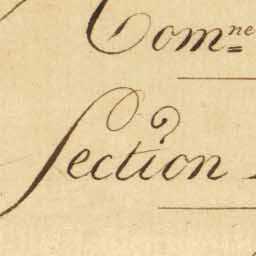 Com.ne
Section